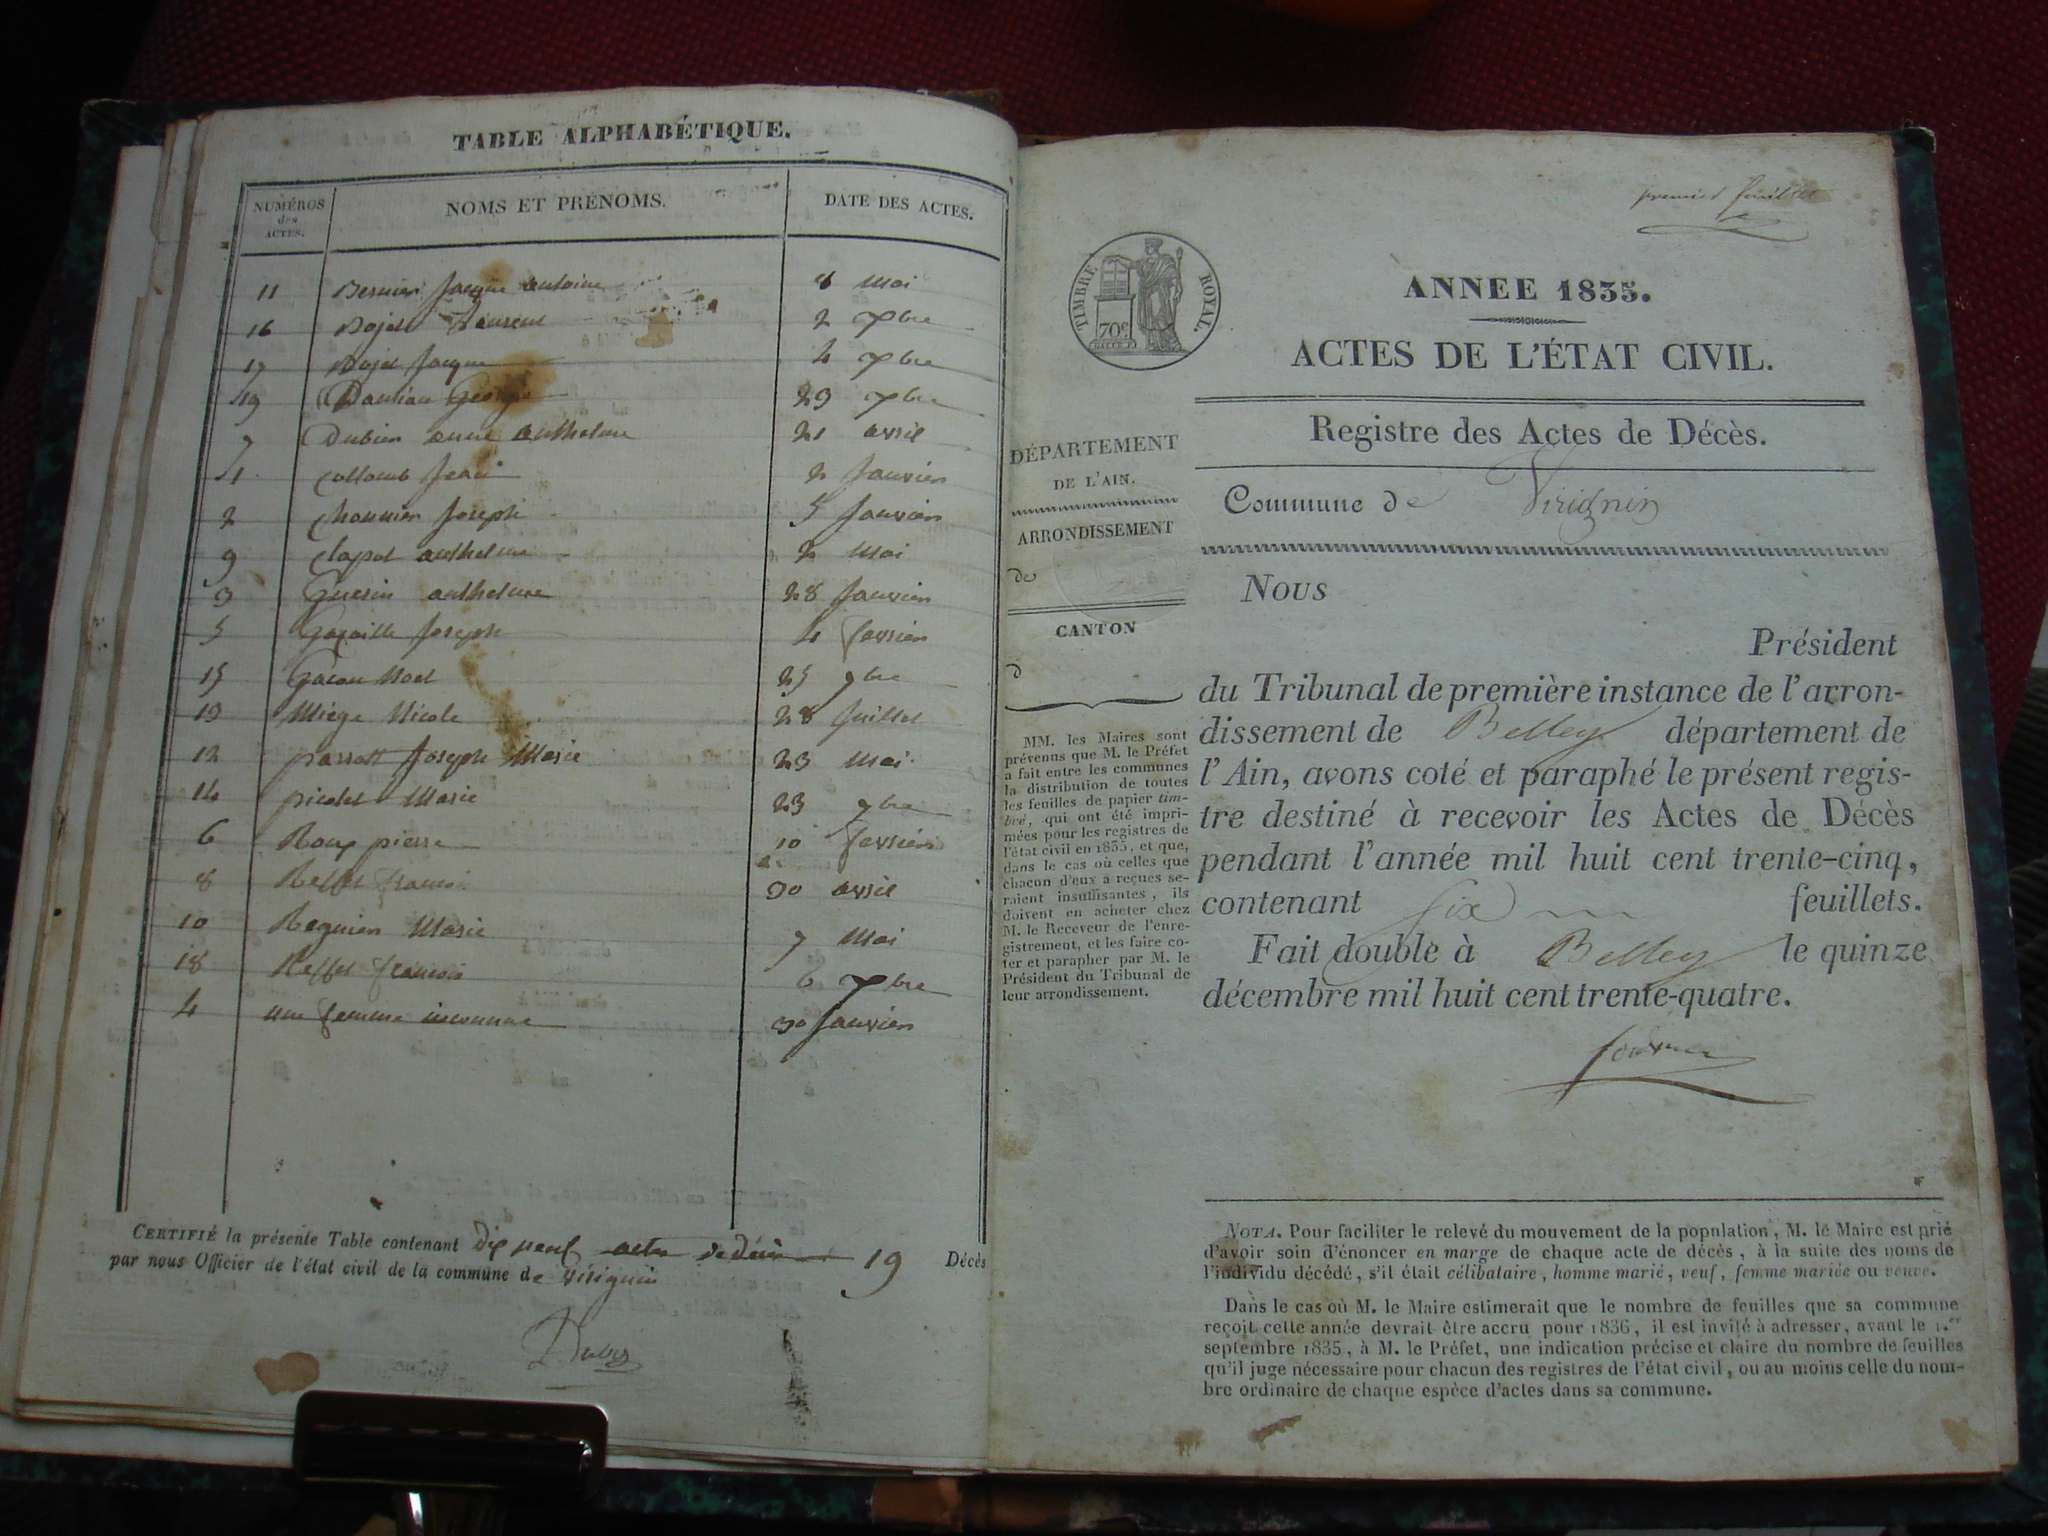 TABLE ALPHABÉTIQUE.
NUMÉROS
des
ACTES.
NOMS ET PRENOMS.
DATE DES ACTES.
11 Bernier Jacque antoine 8 Mai
16 Bojet 2 xbre
17 Bojet Jacque 4 xbre
19 George 29 xbre
7 Dubien anne anthelme 21 avril
1 Collomb Jean 2 Janvier
2 Chaumien Joseph 5 Janvier
9 Clapot anthelme 2 Mai
3 Guerin anthelme 28 Janvier
5 Joseph 4 fevrier
15 Gacon Noel 25 9bre
13 Miège Nicole 28 Juillet
12 parratt Joseph Marie 23 Mai
14 picolet Marie 23 9bre
6 Roux pierre 10 fevrier
8 Reffet francois 30 avril
10 Reguien Marie 7 Mai
18 Reffet francois 6 xbre
4 une femme inconnue 30 Janvier
CERTIFIÉ la présente Table contenant dix neuf actes de décès 19 Décès
par nous Officier de l'état civil de la commune de virignin
premier feuillet
TIMBRE ROYAL.
70c
ANNEE 1835.
ACTES DE L'ÉTAT CIVIL.
Registre des Actes de Décès.
Commune de Virignin
DÉPARTEMENT
DE L'AIN.
ARRONDISSEMENT
de
CANTON
d
MM. les Maires sont
prévenus que M. le Préfet
a fait entre les communes
la distribution de toutes
les feuilles de papier tim-
bré, qui ont été impri-
mées pour les registres de
l'état civil en 1835, et que,
dans le cas où celles que
chacun d'eux a reçues se-
raient insuffisantes, ils
doivent en acheter chez
M. le Receveur de l'enre-
gistrement, et les faire co-
ter et parapher par M. le
Président du Tribunal de
leur arrondissement.
Nous
Président
du Tribunal de première instance de l'arron-
dissement de Belley département de
l'Ain, avons coté et paraphé le présent regis-
tre destiné à recevoir les Actes de Décès
pendant l'année mil huit cent trente-cinq,
contenant six feuillets.
Fait double à Belley le quinze
décembre mil huit cent trente-quatre.
NOTA. Pour faciliter le relevé du mouvement de la population, M. le Maire est prié
d'avoir soin d'énoncer en marge de chaque acte de décès, à la suite des noms de
l'individu décédé, s'il était célibataire, homme marié, veuf, femme mariée ou veuve.
Dans le cas où M. le Maire estimerait que le nombre de feuilles que sa commune
reçoit cette année devrait être accru pour 1836, il est invité à adresser, avant le 1.er
septembre 1835, à M. le Préfet, une indication précise et claire du nombre de feuilles
qu'il juge nécessaire pour chacun des registres de l'état civil, ou au moins celle du nom-
bre ordinaire de chaque espèce d'actes dans sa commune.